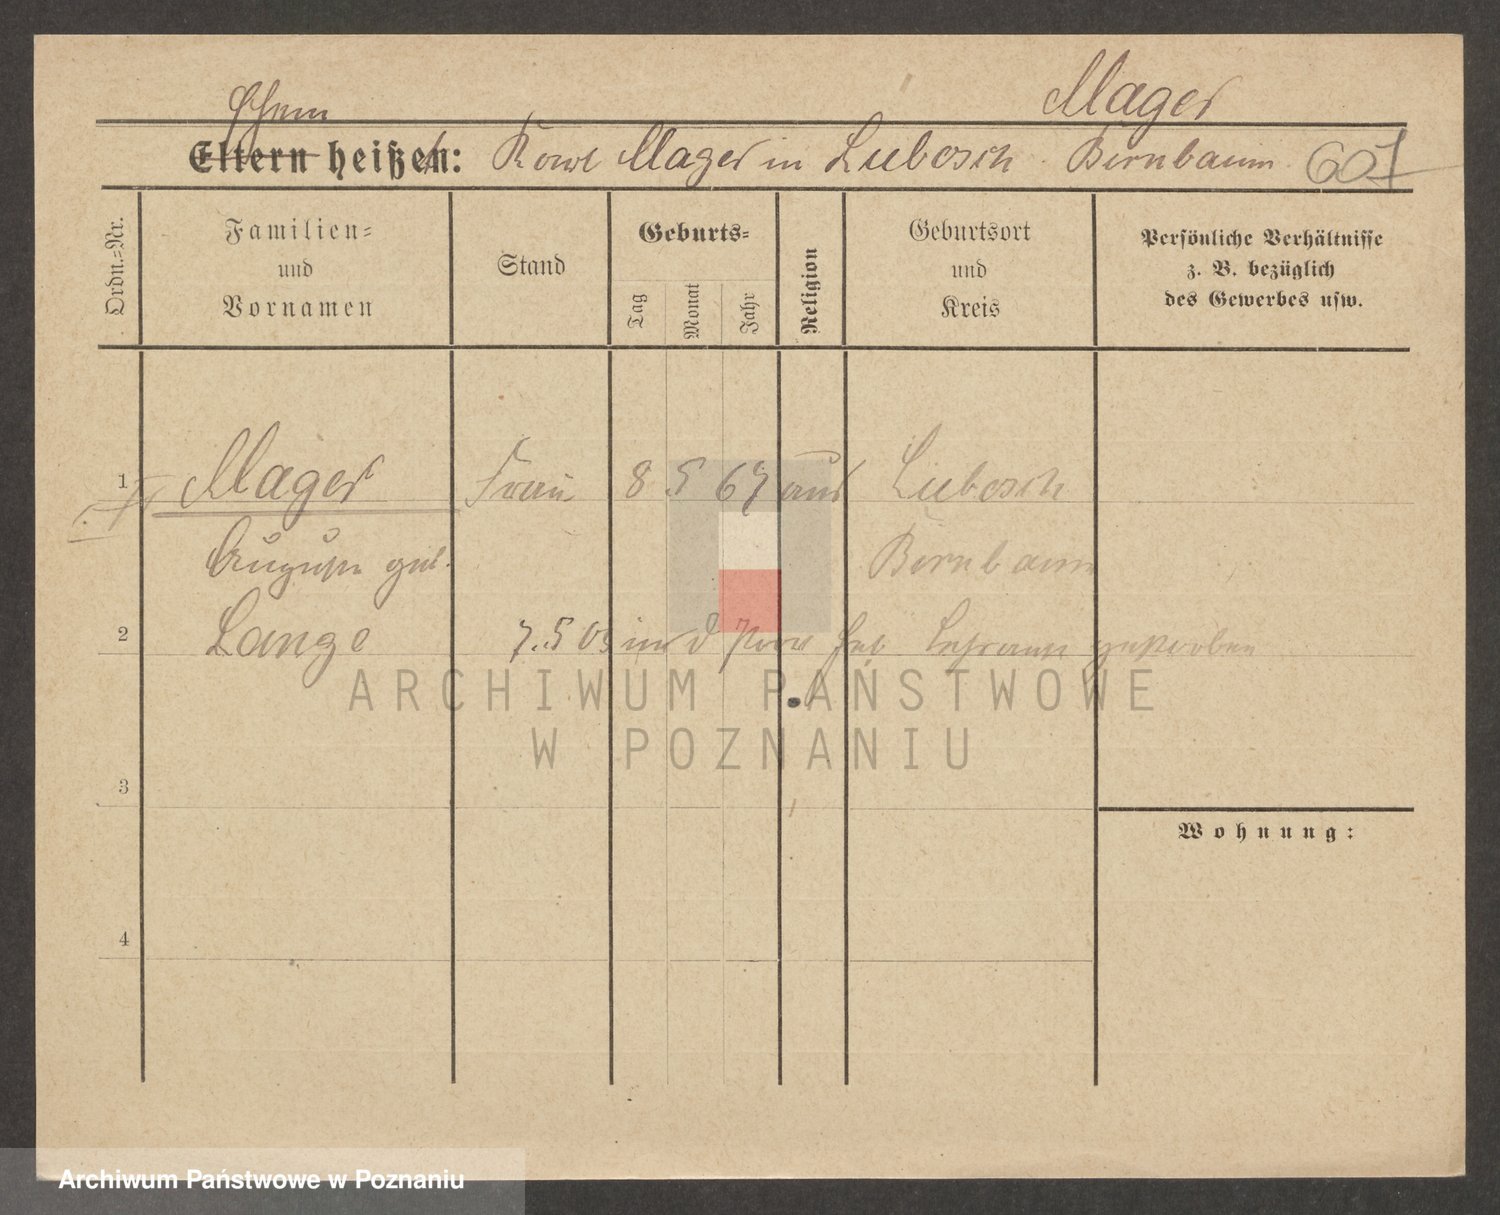 Mager
Ehem
Eltern heißen: Karl Mager in Lubosch Birnbaum 601
Ordn.-Nr.
Familien-
und
Vornamen
Stand
Geburts-
Tag
Monat
Jahr
Religion
Geburtsort
und
Kreis
Persönliche Verhältnisse
z. B. bezüglich
des Gewerbes usw.
1 Mager Frau 8 5 69 Lubosch
Auguste geb. Birnbaum
2 Lange 7.5 05 in d Prov gestorben
ARCHIWUM PAŃSTWOWE
W POZNANIU
3
Wohnung:
4
Archiwum Państwowe w Poznaniu